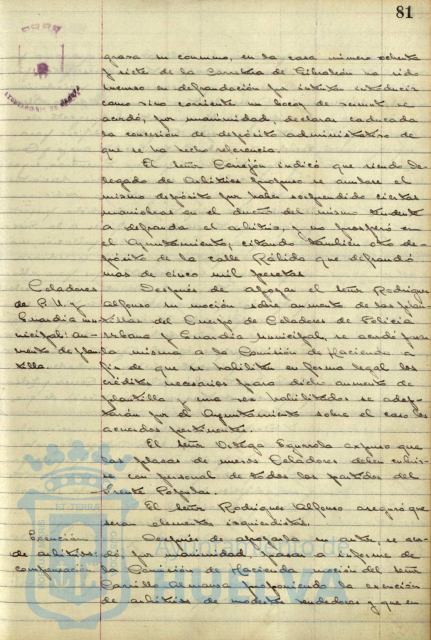 81
grava su consumo, en la casa número ochenta
y siete de la Carretera de Gibraleón ha sido
incurso en defraudación por intentar introducir
como vino corriente un bocoy de vermut se
acordó, por unanimidad, declarar caducada
la concesión de depósito administrativo de
que se ha hecho referencia.
El señor Cerrejón indicó que siendo De-
legado de Arbitrios propuso se anulase el
mismo depósito por haber sorprendido ciertas
maniobras en el dueño del mismo tendente
a defraudar el arbitrio, y no prosperó en
el Ayuntamiento, citando también otro de-
pósito de la calle Rábida que defraudó
mas de cinco mil pesetas
Celadores
de P. U. y
Guardia mu-
nicipal: au-
mento de plan-
tilla.
Después de apoyar el señor Rodríguez
Alfonso su moción sobre aumento de las plan-
tillas del Cuerpo de Celadores de Policía
Urbana y Guardia Municipal, se acordó pasar
la misma a la Comisión de Hacienda a
fin de que se habiliten en forma legal los
créditos necesarios para dicho aumento de
plantilla y una vez habilitados se adop-
tarán por el Ayuntamiento sobre el caso los
acuerdos pertinentes.
El señor Ortega expuso que
las plazas de nuevos Celadores deben cubrir-
se con personal de todos los partidos del
Frente Popular.
El señor Rodríguez Alfonso aseguró que
serán elementos izquierdistas.
Exención
de arbitrios:
compensación
Después de apoyarla su autor, se acor-
dó, por unanimidad, pasar a informe de
la Comisión de Hacienda moción del señor
Carrillo Almansa proponiendo la exención
de arbitrios de modestos vendedores y que en